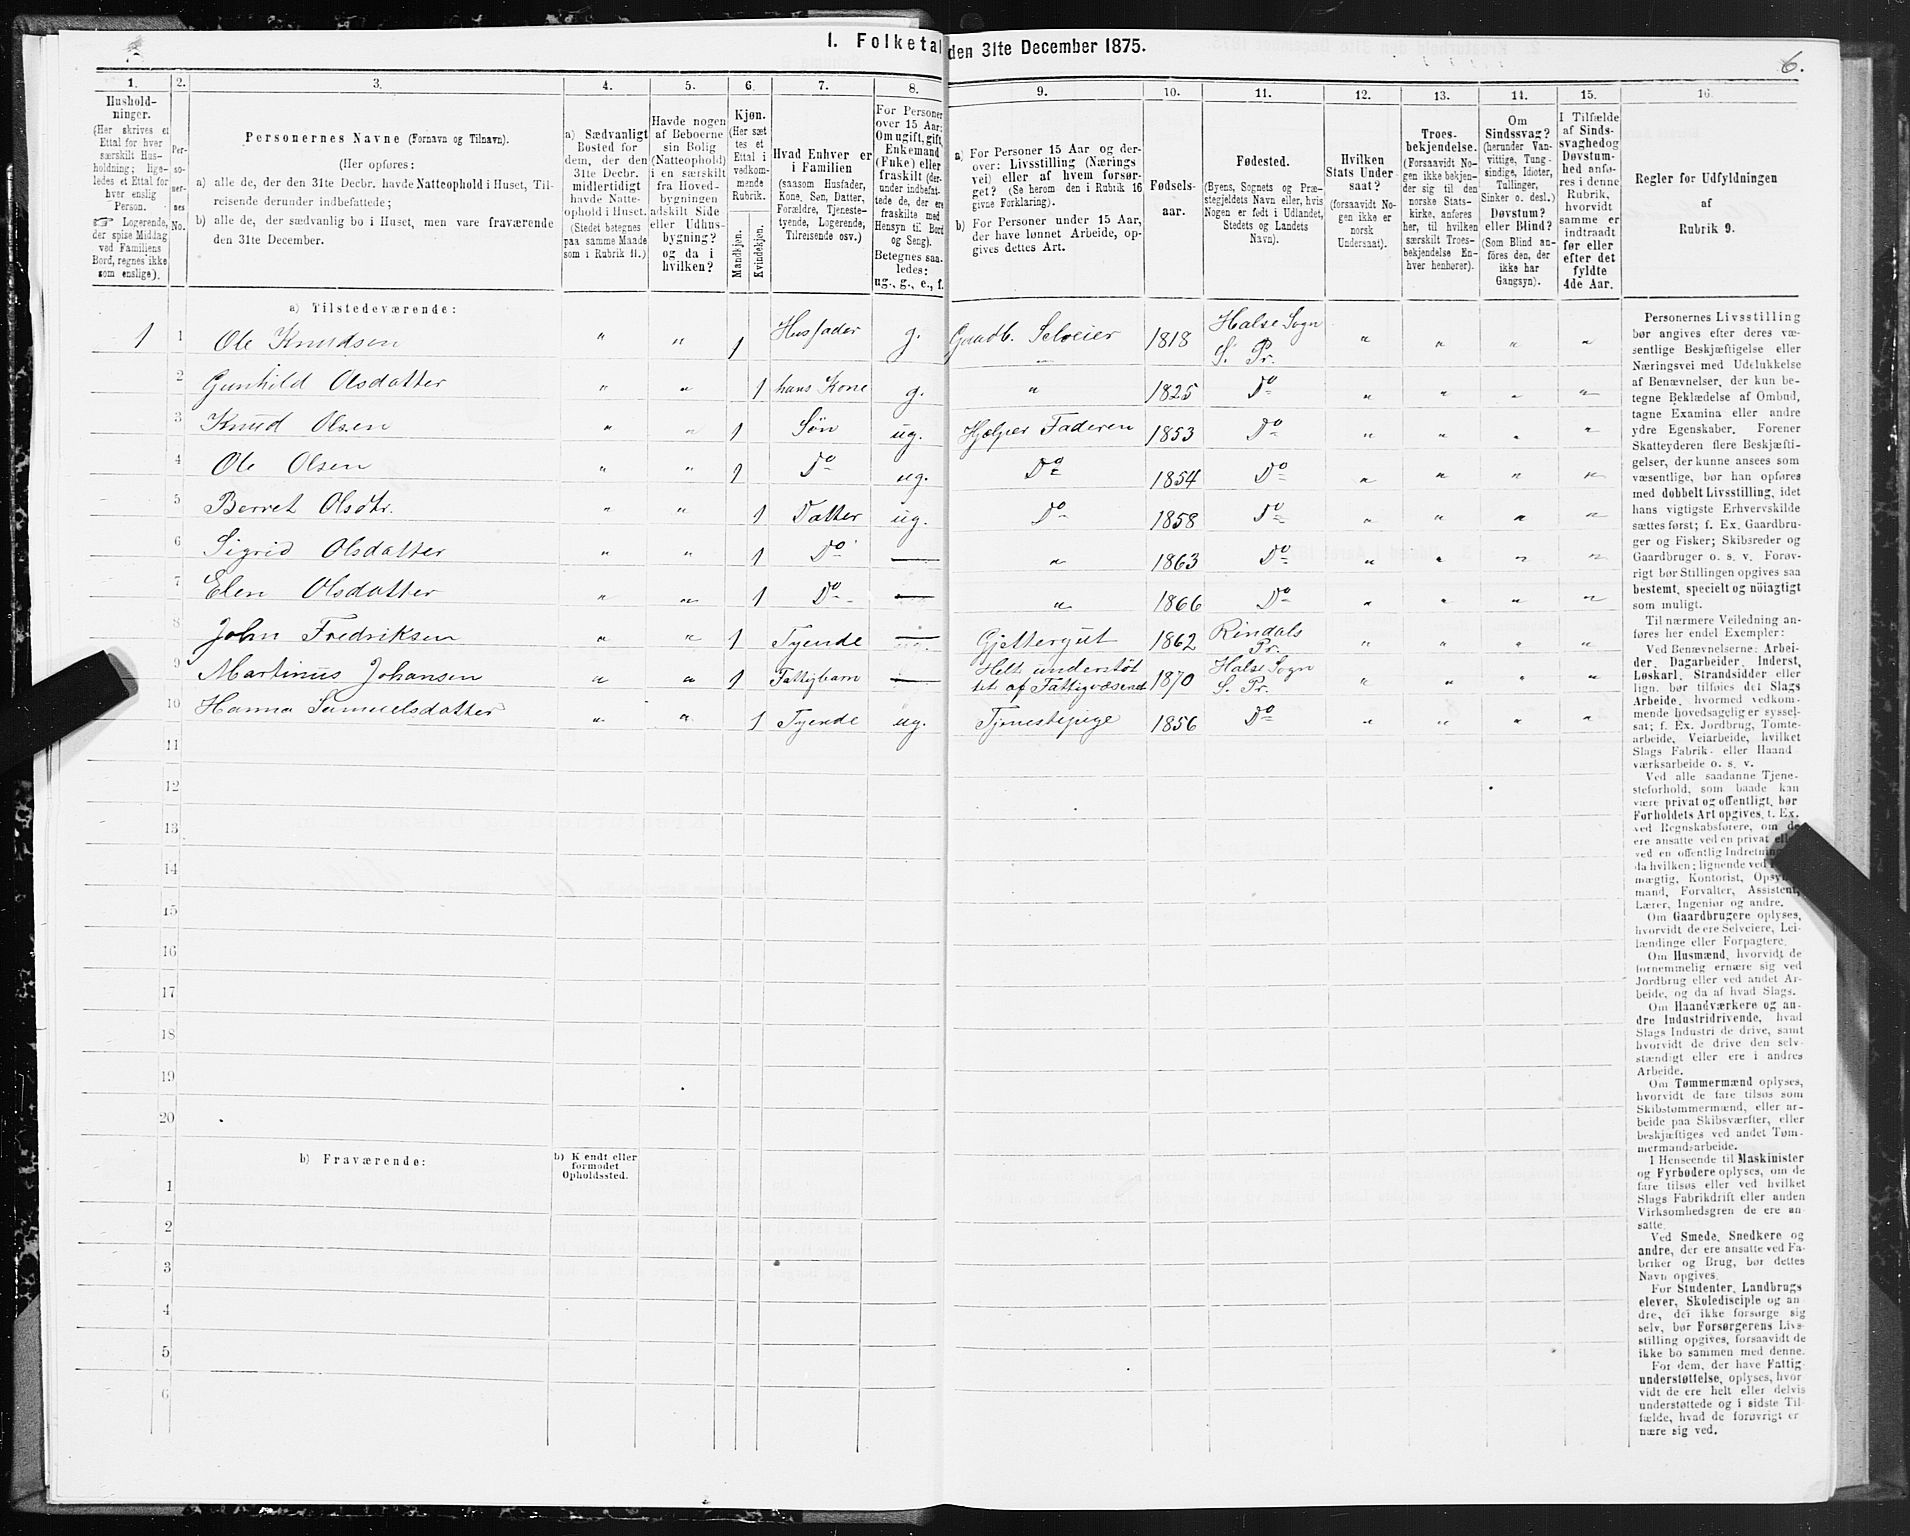 I. Folketal den 31te December 1875.
6.
1. 2. 3. 4. 5. 6. 7. 8. 9. 10. 11. 12. 13. 14. 15. 16.
Hushold-
ninger.
(Her skrives et
Ettal for hver
særskilt Hus-
holdning; lige-
ledes et Ettal for
hver enslig
Person.
☞ Logerende,
der spise Middag
ved Familiens
Bord, regnes ikke
som enslige).
Per-
so-
ner-
nes
No.
Personernes Navne (Fornavn og Tilnavn).
(Her opføres:
a) alle de, der den 31te Decbr. havde Natteophold i Huset, Til-
reisende derunder indbefattede;
b) alle de, der sædvanlig bo i Huset, men vare fraværende
den 31te December.
a) Sædvanligt
Bosted for
dem, der den
31te Decbr.
midlertidigt
havde Natte-
ophold i Huset.
(Stedet betegnes
paa samme Maade
som i Rubrik 11.)
Havde nogen
af Beboerne
sin Bolig
(Natteophold)
i en særskilt
fra Hoved-
bygningen
adskilt Side
eller Udhus-
bygning?
og da i
hvilken?
Kjøn.
(Her sæt
tes et
Ettal i
vedkom-
mende
Rubrik.
Mandkjøn.
Kvindekjøn.
Hvad Enhver er
i Familien
(saasom Husfader,
Kone, Søn, Datter,
Forældre, Tjeneste-
tyende, Logerende,
Tilreisende osv.)
For Personer
over 15 Aar:
Om ugift, gift,
Enkemand
(Enke) eller
fraskilt (der-
under indbefat-
tede de, der ere
fraskilte med
Hensyn til Bord
og Seng).
Betegnes saa-
ledes:
ug., g., e., f.
a) For Personer 15 Aar og der-
over: Livsstilling (Nærings
vei) eller af hvem forsør-
get? (Se herom den i Rubrik 16
givne Forklaring).
b) For Personer under 15 Aar,
der have lønnet Arbeide, op-
gives dettes Art.
Fødsels-
aar.
Fødested.
(Byens, Sognets og Præ-
stegjeldets Navn eller, hvis
Nogen er født i Udlandet,
Stedets og Landets
Navn).
Hvilken
Stats Under
saat?
(forsaavidt No-
gen ikke er
norsk
Undersaat).
Troes-
bekjendelse.
(Forsaavidt No-
gen ikke bekjen-
der sig til den
norske Stats-
kirke, anføres
her, til hvilken
særskilt Troes-
bekjendelse En-
hver henhører).
Om
Sindssvag?
(herunder Van-
vittige, Tung-
sindige, Idioter,
Tullinger,
Sinker o. desl.)
Døvstum?
eller Blind?
(Som Blind an-
føres den, der
ikke har
Gangsyn).
I Tilfælde
af Sinds-
svaghed og
Døvstum-
hed anfø-
res i denne
Rubrik,
hvorvidt
samme er
indtraadt
før eller
efter det
fyldte
4de Aar.
Regler for Udfyldningen
af
Rubrik 9.
a) Tilstedeværende:
1 1 Ole Knudsen " " 1 Husfader g. Gaardb. Selveier 1818 Halse Sogn S. Pr. " " " "
2 Gunhild Olsdatter " " 1 hans Kone g. " 1825 Do " " " "
3 Knud Olsen " " 1 Søn ug. Hjælper Faderen 1853 Do " " " "
4 Ole Olsen " " 1 Do ug. Do 1854 Do " " " "
5 Berret Olsdtr. " " 1 Datter ug. Do 1858 Do " " " "
6 Sigrid Olsdatter " " 1 Do — " 1863 Do " " " "
7 Elen Olsdatter " " 1 Do — " 1866 Do " " " "
8 John Fredriksen " " 1 Tyende — Gjettergut 1862 Rindals Pr. " " " "
9 Martinus Johansen " " 1 Fattigbarn — Helt understøt tet af Fattigvæsenet 1870 Halse Sogn S. Pr. " " " "
10 Hanna Samuelsdatter " " 1 Tyende ug. Tjenestepige 1856 Do " " " "
11
12
13
14
15
16
17
18
19
20
b) Fraværende:
b) Kendt eller
formodet
Opholdssted.
1
2
3
4
5
6
Personernes Livsstilling
bør angives efter deres væ-
sentlige Beskjæftigelse eller
Næringsvei med Udelukkelse
af Benævnelser, der kun be-
tegne Beklædelse af Ombud,
tagne Examina eller andre
ydre Egenskaber. Forener
Skatteyderen flere Beskjæfti-
gelser, der kunne ansees som
væsentlige, bør han opføres
med dobbelt Livsstilling, idet
hans vigtigste Erhvervskilde
sættes først; f. Ex. Gaardbru-
ger og Fisker; Skibsreder og
Gaardbruger o. s. v. Forøv-
rigt bør Stillingen opgives saa
bestemt, specielt og nöiagtigt
som muligt.
Til nærmere Veiledning an-
føres her endel Exempler:
Ved Benævnelserne: Arbei-
der, Dagarbeider, Inderst,
Løskarl, Strandsidder eller
lign. bør tilføies det Slags
Arbeide, hvormed vedkom-
mende hovedsagelig er syssel-
sat; f. Ex. Jordbrug, Tomte-
arbeide, Veiarbeide, hvilket
Slags Fabrik- eller Haand-
værksarbeide o. s. v.
Ved alle saadanne Tjene-
steforhold, som baade kan
være privat og offentligt, bør
Forholdets Art opgives, t. Ex.
ved Regnskabsførere, om de
ere ansatte ved en privat eller
ved en offentlig Indretning
da hvilken; lignende ved
mægtig, Kontorist, Opsyns
mand, Forvalter, Assistent,
Lærer, Ingeniør og andre.
Om Gaardbrugere oplyses,
hvorvidt de ere Selveiere, Lei-
lændinge eller Forpagtere.
Om Husmænd, hvorvidt de
fornemmelig ernære sig ved
Jordbrug eller ved andet Ar-
beide, og da af hvad Slags.
Om Haandværkere og an-
dre Industridrivende, hvad
Slags Industri de drive, samt
hvorvidt de drive den selv-
stændigt eller ere i andres
Arbeide.
Om Tømmermænd oplyses,
hvorvidt de fare tilsøs som
Skibstømmermænd, eller ar-
beide paa Skibsværfter, eller
beskjæftiges ved andet Tøm-
mermandsarbeide.
I Henseende til Maskinister
og Fyrbødere oplyses, om de
fare tilsøs eller ved hvilket
Slags Fabrikdrift eller anden
Virksomhedsgren de ere an-
satte.
Ved Smede, Snedkere og
andre, der ere ansatte ved Fa-
briker og Brug, bør dettes
Navn opgives.
For Studenter, Landbrugs
elever, Skoledisciple og an
dre, der ikke forsørge sig
selv, bør Forsørgerens Livs-
stilling opgives, forsaavidt de
ikke bo sammen med denne.
For dem, der have Fattig
understøttelse, oplyses, hvor
vidt de ere helt eller delvis
understøttede og i sidste Til-
fælde, hvad de forøvrigt er
nære sig ved.